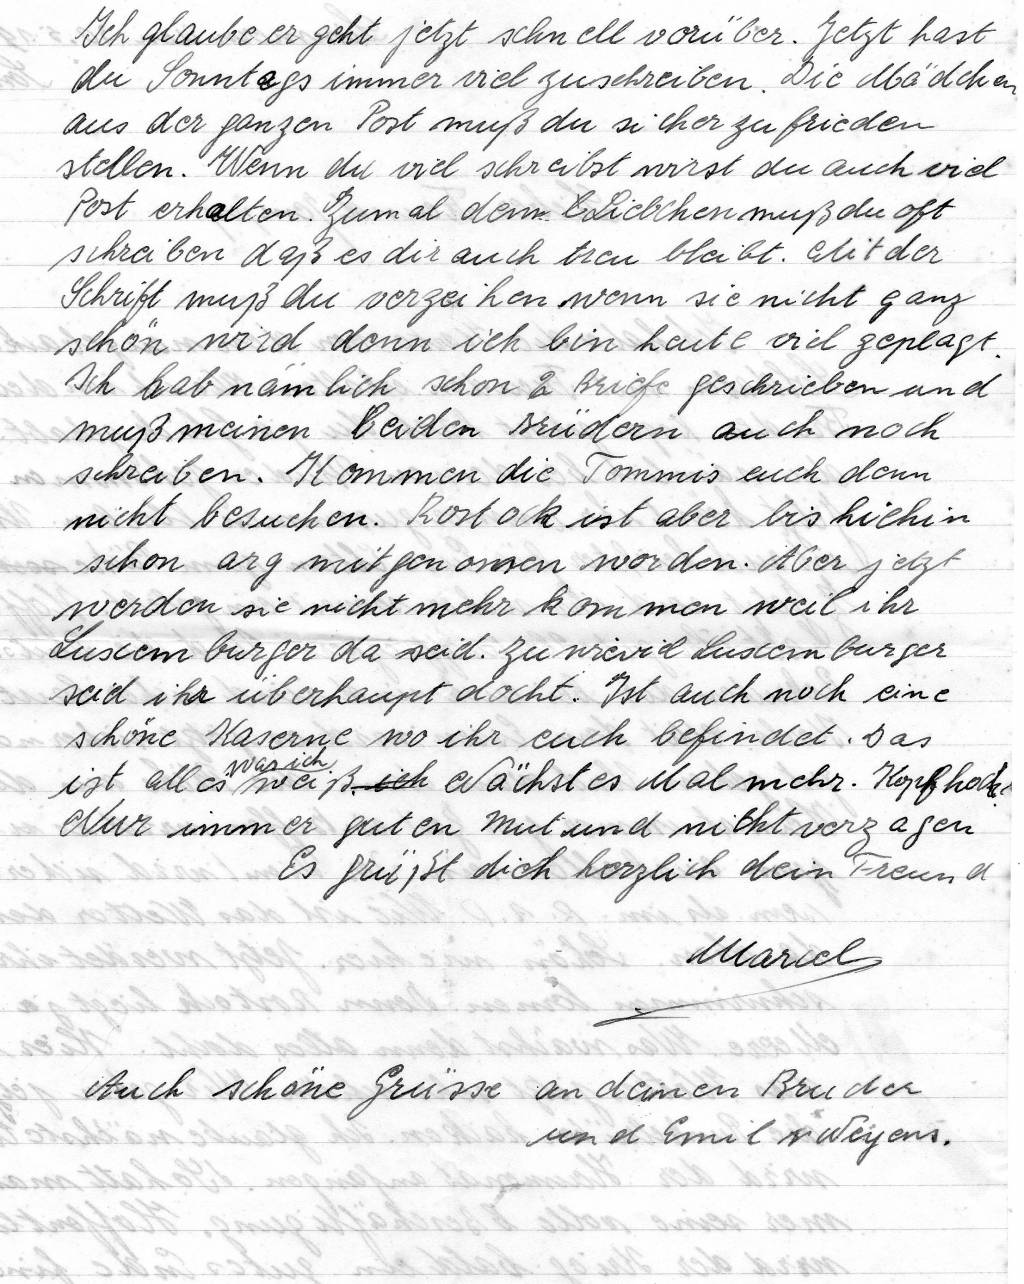 Ich glaube er geht jetzt schnell vorüber. Jetzt hast
du Sonntags immer viel zuschreiben. Die Mädchen
aus der ganzen Post muß du sicher zufrieden
stellen. Wenn du viel schreibst wirst du auch viel
Post erhalten. Zumal dem Liebchen muß du oft
schreiben daß es dir auch treu bleibt. Mit der
Schrift muß du verzeihen wenn sie nicht ganz
schön wird denn ich bin heute viel geplagt.
Ich hab nämlich schon 2 Briefe geschrieben und
muß meinen beiden Brüdern auch noch
schreiben. Kommen die Tommis euch denn
nicht besuchen. Rostock ist aber bis hiehin
schon arg mitgenomen worden. Aber jetzt
werden sie nicht mehr kommen weil ihr
Luxemburger da seid. Zu wieviel Luxemburger
seid ihr überhaupt docht. Ist auch noch eine
schöne Kaserne wo ihr euch befindet. Das
ist alles was ich weiß ich Nächstes Mal mehr. Kopfhoch.
Nur immer guten Mut und nicht verzagen
Es grüßt dich herzlich dein Freund
Marcel
Auch schöne Grüsse an deinen Bruder
und Emil Weyens.